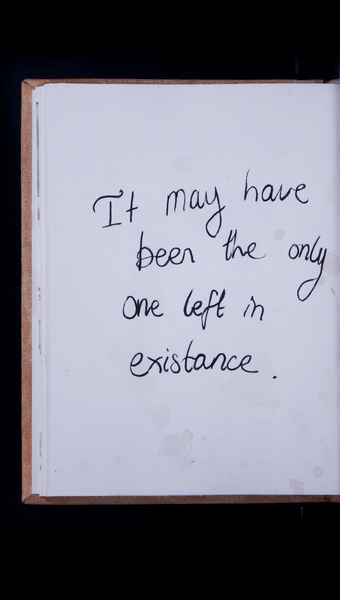 It may have
been the only
one left in
existance.